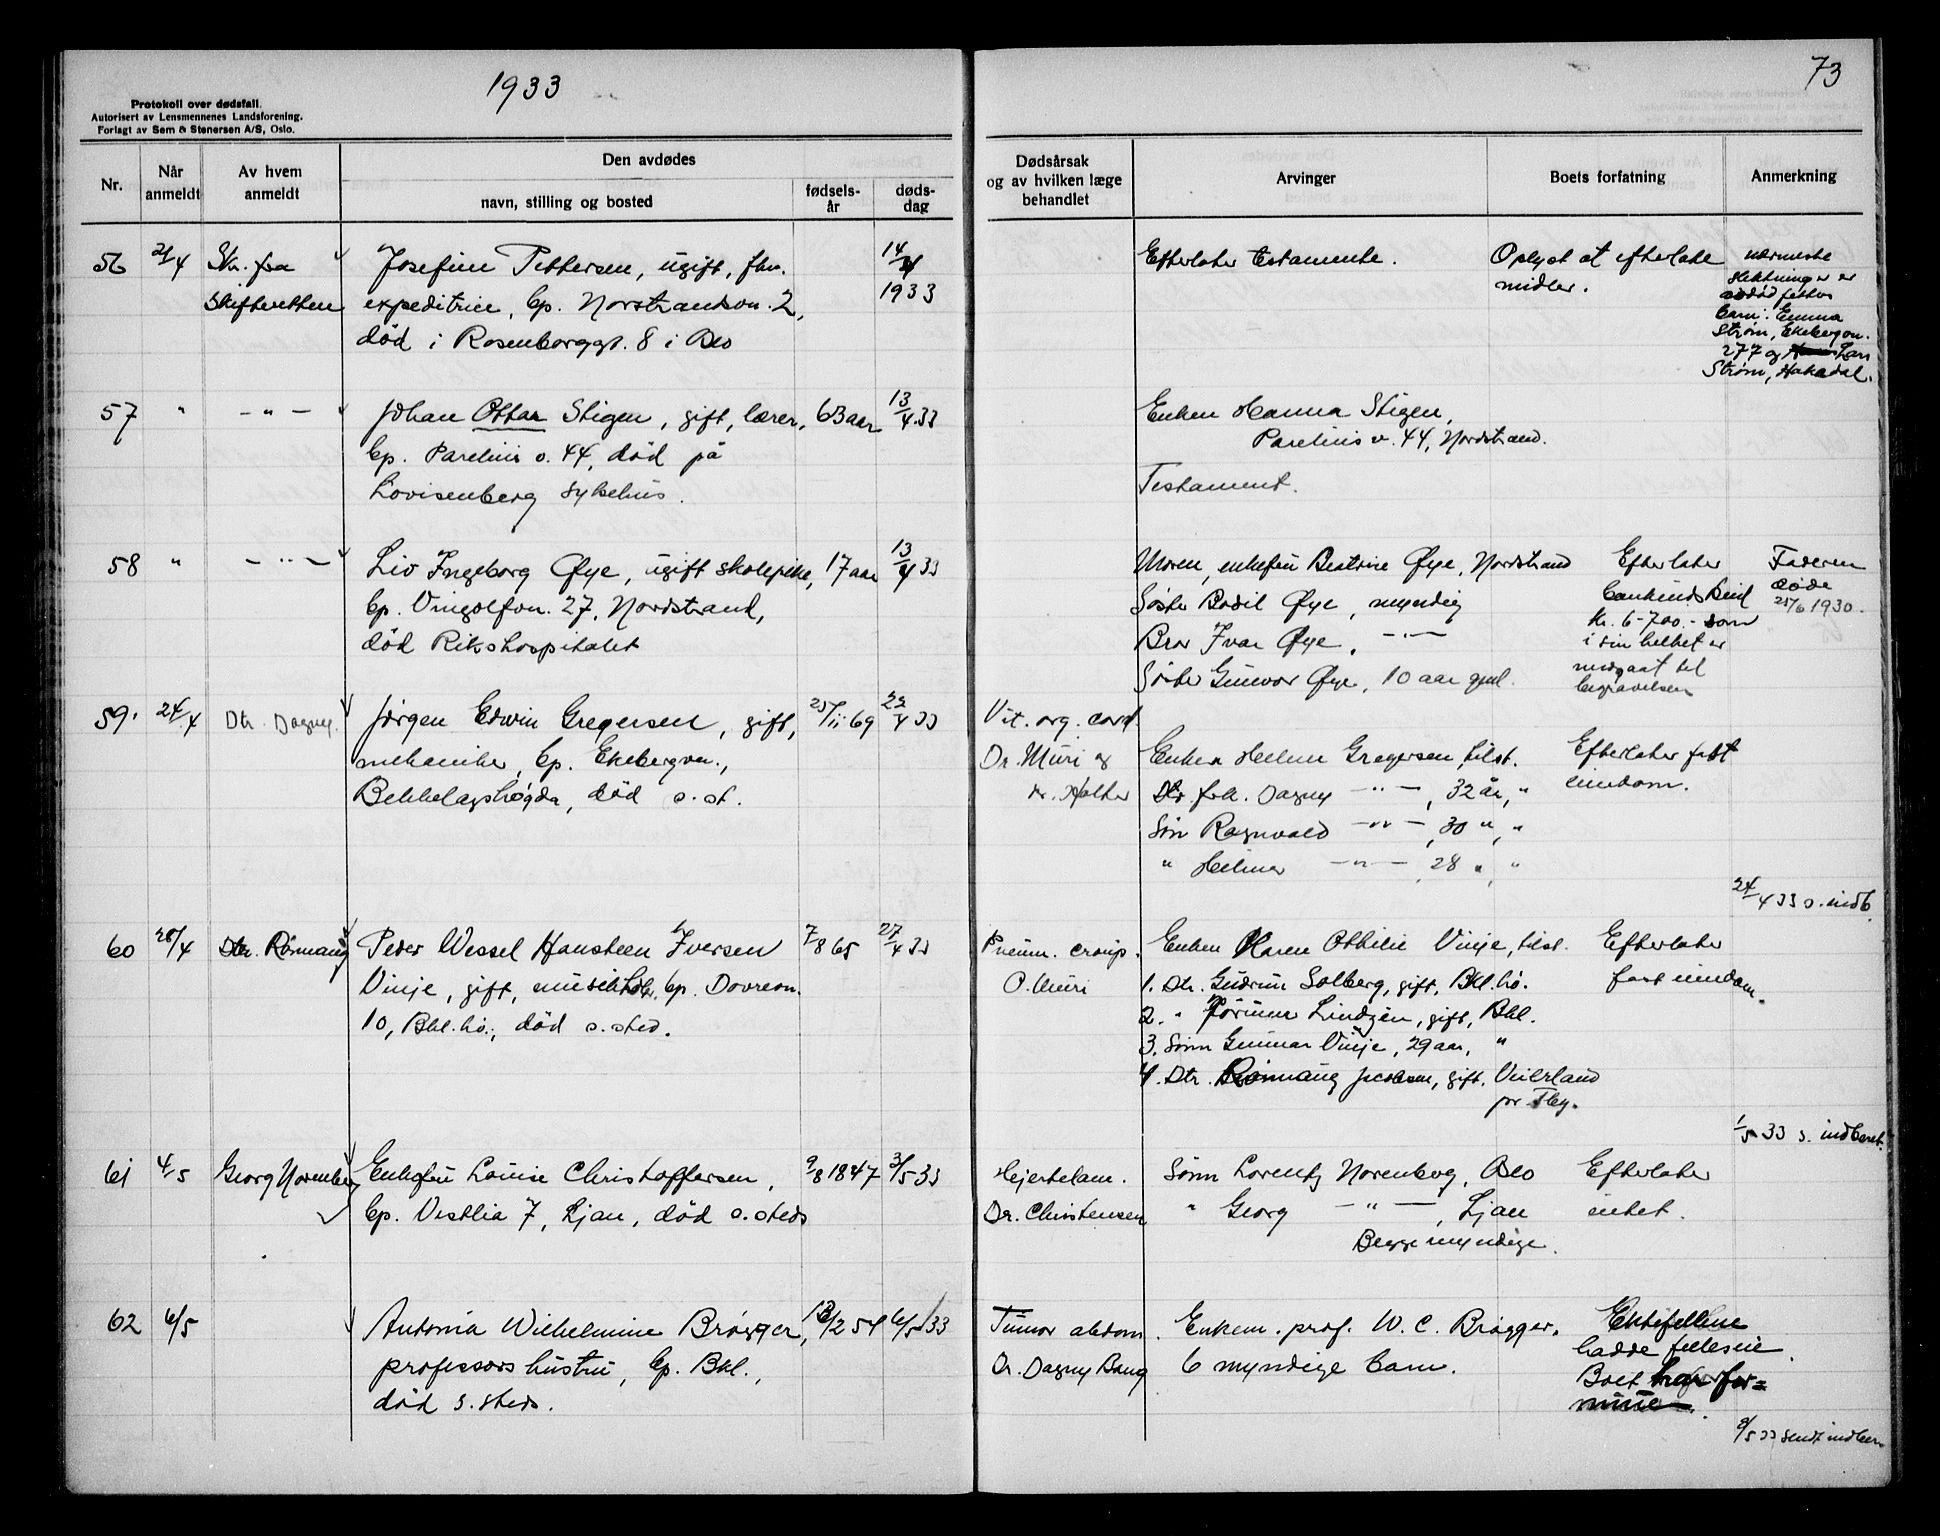 1933
73
Protokoll over dødsfall.
Autorisert av Lensmennenes Landsforening.
Forlagt av Sem & Stenersen A/S, Oslo.
Nr.
Når anmeldt
Av hvem anmeldt
Den avdødes
navn, stilling og bosted
fødsels-år
døds-dag
Dødsårsak og av hvilken læge behandlet
Arvinger
Boets forfatning
Anmerkning
56 21/4 Skr. fra Skifteretten
Josefine Pettersen, ugift, fhv.
expeditrice, bp. Norstrandsvn. 2,
død i Rosenborggt. 8 i Oslo
14/4 1933
Efterlater testamente.
Oplyst at efterlate
midler.
nærmeste
slektninger er
avdød fetters
barn: Emma
Strøm, Ekebergvn.
277 og Lars
Strøm, Hakadal.
57 " - " -
Johan Ottar Stigen, gift, lærer, 63 aar 13/4.33
bp. Parelius v. 44, død på
Lovisenberg sykehus.
Enken Hanna Stigen,
Parelius v. 44, Nordstrand.
Testament.
58 " - " -
Liv Ingeborg Øye, ugift skolepike, 17 aar 13/4 33
bp. Vingolfvn. 27, Nordstrand,
død Rikshospitalet
Moren, enkefru Beatrice Øye, Nordstrand
Søster Bodil Øye, myndig
Bror Ivar Øye, - " -
Søster Gunvor Øye, 10 aar gml.
Efterlater
bankinnskudd
kr. 6-700.- som
i sin helhet er
medgaat til
begravelsen
Faderen
døde
25/6 1930.
59. 24/4 Dtr. Dagny.
Jørgen Edwin Gregersen, gift, 25/11 69 22/4 33
mekaniker, bp. Ekebergvn.,
Bekkelagshøgda, død s. st.
Vit. org. cord.
Dr. Muri og
dr. Holter
Enken Helene Gregersen, tilst.
Dtr. frk. Dagny - " -, 32 år, "
Søn Ragnvald - " -, 30 ", "
" Helmer - " -, 28 ", "
Efterlater fast
eiendom.
24/4 33 s. indb.
60 28/4 Dtr. Rønnaug
Peder Wessel Hansteen Iversen 7/8 65 27/4 33
Vinje, gift, bp. Dovrevn.
10, Bkl.hø., død s. sted.
Pneum. croup.
O. Muri
Enken Karen Othilie Vinje, tilst.
1. Dtr. Gudrun Solberg, gift, Bkl.hø.
2. " Jørunn Lindgen, gift, Bkl.
3. Sønn Gunnar Vinje, 29 aar, "
4. Dtr. Rønnaug Jacobsen, gift, Veierland
pr. Tbg.
Efterlater
fast eiendom.
1/5 33 s. indberet.
61 4/5 Georg Norenberg
Enkefru Louise Christoffersen, 9/8 1847 3/5 33
bp. Vestlia 7, Ljan, død s. steds
Hjertelam.
Dr. Christensen
Sønn Lorentz Norenberg, Oslo
" Georg - " -, Ljan
Begge myndige.
Efterlater
intet.
62 6/5
Antonia Wilhelmine Brøgger, 12/2 54 6/5 33
professors hustru, bp. Bkl.,
død s. steds.
Tumor abdom.
Dr. Dagny Bang
Enkem. prof. W. C. Brøgger.
6 myndige barn.
Ektefellene
hadde felleseie.
Boet har for=
mue.
8/5 33 sendt indber.